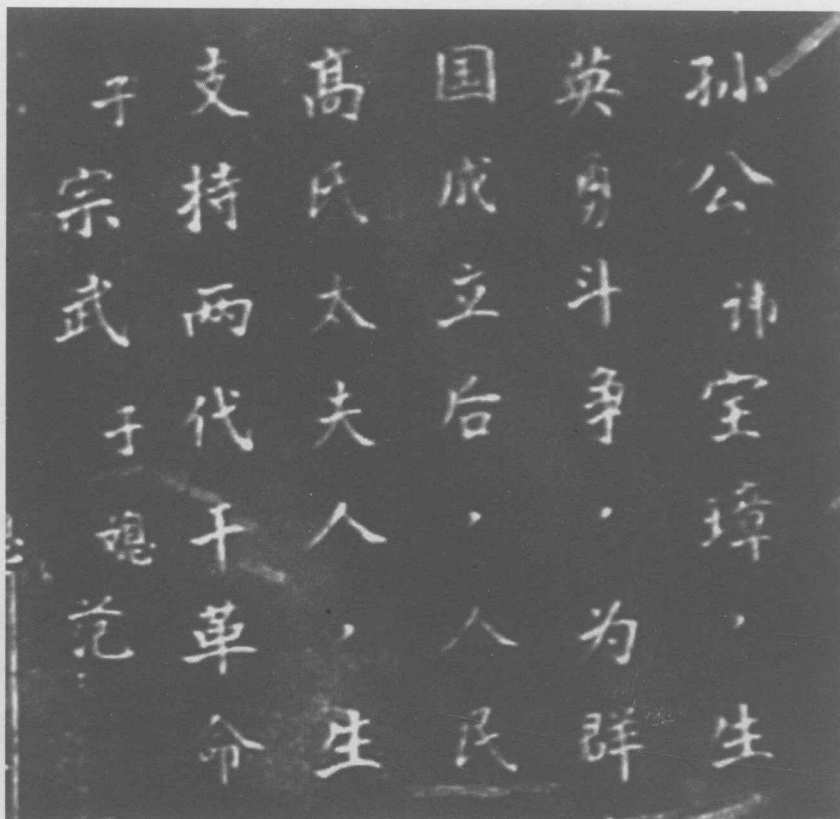 孙公讳宝璋，生
英勇斗争，为群
国成立后，人民
高氏太夫人，生
支持两代干革命
子宗武子媳范